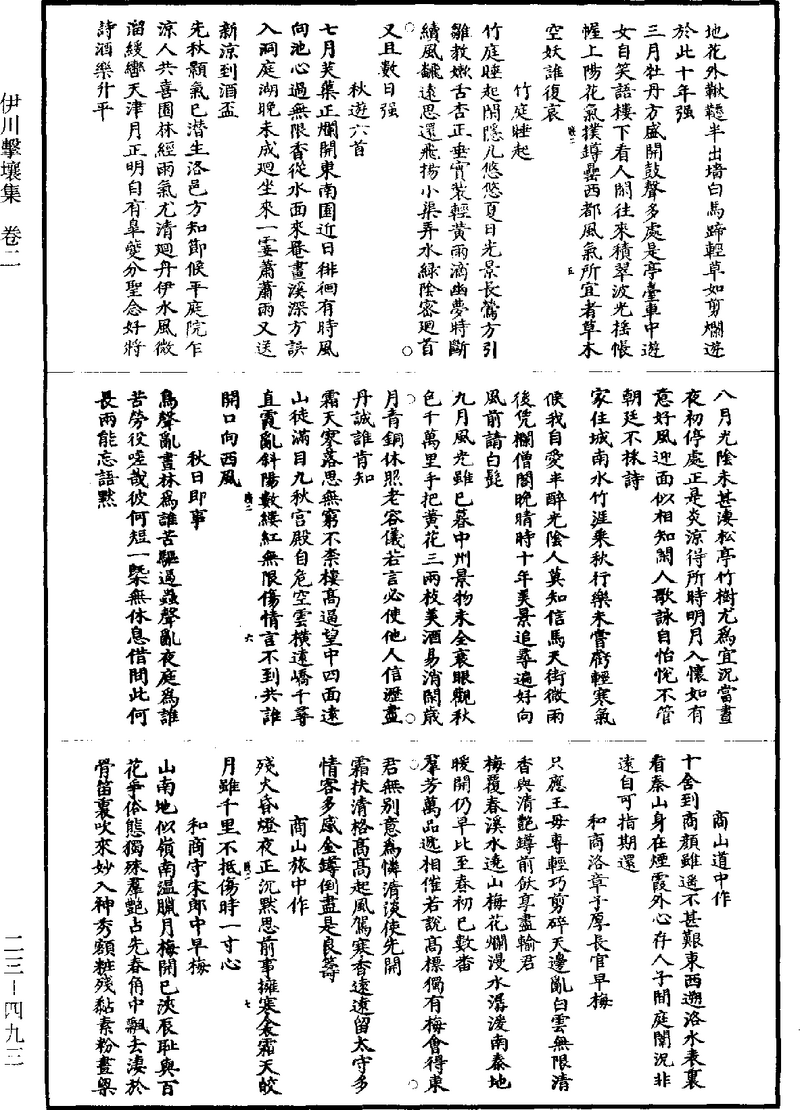 地花外鞦韆半出墻白馬蹄輕草如剪爛遊
於此十年强
三月牡丹方盛開鼓聲多處是亭臺車中遊
女自笑語樓下看人閒往來積翠波光搖帳
幄上陽花氣撲罇罍西都風氣所宜者草木
空妖誰復哀
竹庭睡起
竹庭睡起閒隱几悠悠夏日光景長鶯方引
雛教嫩舌杏正垂實裝輕黃雨滴幽夢時斷
續風飜遠思還飛揚小渠弄水綠陰密廻首
又且數日强
秋遊六首
七月芙蕖正爛開東南園近日徘徊有時風
向池心過無限香從水面來罨畫溪深方誤
入洞庭湖晚未成廻坐來一霎蕭蕭雨又送
新涼到酒盃
先秋顥氣已潛生洛邑方知節候平庭院乍
涼人共喜園林經雨氣尤清廻舟伊水風微
溜緩轡天津月正明自有臯夔分聖念好將
詩酒樂升平
八月光陰未甚淒松亭竹樹尤為宜況當晝
夜初停處正是炎涼得所時明月入懷如有
意好風迎面似相知閒人歌詠自怡悅不管
朝廷不採詩
家住城南水竹涯乘秋行樂未嘗虧輕寒氣
候我自愛半醉光陰人莫知信馬天街微雨
後凭欄僧閣晚晴時十年美景追尋遍好向
風前請白髭
九月風光雖已暮中州景物未全衰眼觀秋
色千萬里手把黃花三兩枝美酒易消閒歲
月青銅休照老容儀若言必使他人信瀝盡
丹誠誰肯知
霜天寥落思無窮不柰樓高逼望中四面遠
山徒滿目九秋宮殿自危空雲橫遠嶠千尋
直霞亂斜陽數縷紅無限傷情言不到共誰
開口向西風
秋日即事
鳥聲亂晝林為誰苦驅逼蟲聲亂夜庭為誰
苦勞役嗟哉彼何短一槩無休息借問此何
長雨能忘語默
商山道中作
十舍到商顔雖遥不甚艱東西遡洛水表裏
看秦山身在煙霞外心存人子間庭闈況非
遠自可指期還
和商洛章子厚長官早梅
只應王母專輕巧剪碎天邊亂白雲無限清
香與清艷罇前飲享盡輸君
梅覆春溪水遶山梅花爛漫水潺湲南秦地
暖開仍早比至春初已數番
羣芳萬品遞相催若說高標獨有梅會得東
君無別意為憐清淡使先開
霜扶清格高高起風駕寒香遠遠留太守多
情客多感金罇倒盡是良籌
商山旅中作
殘火昏燈夜正沉默思前事擁寒衾霜天皎
月雖千里不抵傷時一寸心
和商守宋郎中早梅
山南地似嶺南温臘月梅開已浹辰恥與百
花爭俗態獨殊羣艷占先春角中飄去淒於
骨笛裏吹來妙入神秀額粧殘黏素粉畫梁
伊川擊壤集 卷二
二三—四九三